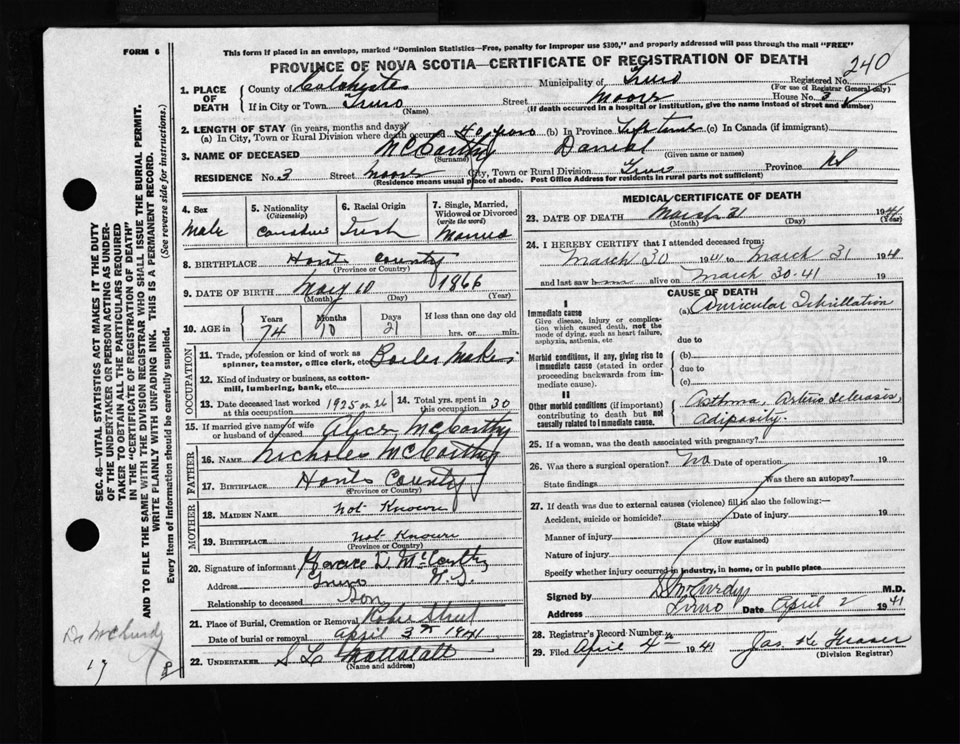 FORM 6
This form if placed in an envelope, marked "Dominion Statistics—Free, penalty for improper use $300," and properly addressed will pass through the mail "FREE"
PROVINCE OF NOVA SCOTIA—CERTIFICATE OF REGISTRATION OF DEATH
240
1. PLACE OF DEATH
County of Colchester Municipality of Truro Registered No.
(For use of Registrar General only)
If in City or Town Truro Street Moore House No. 3
(Name) (If death occurred in a hospital or institution, give the name instead of street and number)
2. LENGTH OF STAY (in years, months and days)
(a) In City, Town or Rural Division where death occurred 40 years (b) In Province Life time (c) In Canada (if immigrant)
3. NAME OF DECEASED McCarthy Daniel
(Surname) (Given name or names)
RESIDENCE No. 3 Street Moore City, Town or Rural Division Truro Province
(Residence means usual place of abode. Post Office Address for residents in rural parts not sufficient)
4. Sex Male
5. Nationality (Citizenship) Canadian
6. Racial Origin Irish
7. Single, Married, Widowed or Divorced (write the word) Married
8. BIRTHPLACE Hants County
(Province or Country)
9. DATE OF BIRTH May 10 1866
(Month) (Day) (Year)
10. AGE in Years Months Days If less than one day old
74 10 21 hrs. or min.
OCCUPATION
11. Trade, profession or kind of work as spinner, teamster, office clerk, etc. Boiler Maker
12. Kind of industry or business, as cotton-mill, lumbering, bank, etc.
13. Date deceased last worked at this occupation 1925 or 26
14. Total yrs. spent in this occupation 30
15. If married give name of wife or husband of deceased Alice McCarthy
FATHER
16. NAME Nicholas McCarthy
17. BIRTHPLACE Hants County
(Province or Country)
MOTHER
18. MAIDEN NAME Not Known
19. BIRTHPLACE Not Known
(Province or Country)
20. Signature of informant Horace D. McCarthy
Address Truro N.S.
Relationship to deceased Son
21. Place of Burial, Cremation or Removal Robie Street
Date of burial or removal April 3rd 1941
22. UNDERTAKER S L
(Name and address)
MEDICAL CERTIFICATE OF DEATH
23. DATE OF DEATH March 31 1941
(Month) (Day) (Year)
24. I HEREBY CERTIFY that I attended deceased from:
March 30 1941 to March 31 1941
and last saw h alive on March 30-41 19
CAUSE OF DEATH
I
Immediate cause
Give disease, injury or complication which caused death, not the mode of dying, such as heart failure, asphyxia, asthenia, etc
(a) Auricular Fibrillation
due to
Morbid conditions, if any, giving rise to immediate cause (stated in order proceeding backwards from immediate cause).
(b)
due to
(c)
II
Other morbid conditions (if important) contributing to death but not causally related to immediate cause.
Asthma, Arterio sclerosis,
Adiposity.
25. If a woman, was the death associated with pregnancy?
26. Was there a surgical operation? No Date of operation 19
State findings Was there an autopsy?
27. If death was due to external causes (violence) fill in also the following:
Accident, suicide or homicide? Date of injury 19
(State which)
Manner of injury
(How sustained)
Nature of injury
Specify whether injury occurred in industry, in home, or in public place
Signed by M.D.
Address Truro Date April 2 1941
28. Registrar's Record Number
29. Filed April 4th 1941 Jas. Fraser
(Division Registrar)
SEC. 46—VITAL STATISTICS ACT MAKES IT THE DUTY
OF THE UNDERTAKER OR PERSON ACTING AS UNDER-
TAKER TO OBTAIN ALL THE PARTICULARS REQUIRED
IN THE "CERTIFICATE OF REGISTRATION OF DEATH"
AND TO FILE THE SAME WITH THE DIVISION REGISTRAR WHO SHALL ISSUE THE BURIAL PERMIT.
WRITE PLAINLY WITH UNFADING INK. THIS IS A PERMANENT RECORD.
Every item of information should be carefully supplied. (See reverse side for instructions.)
Dr McCurdy
17